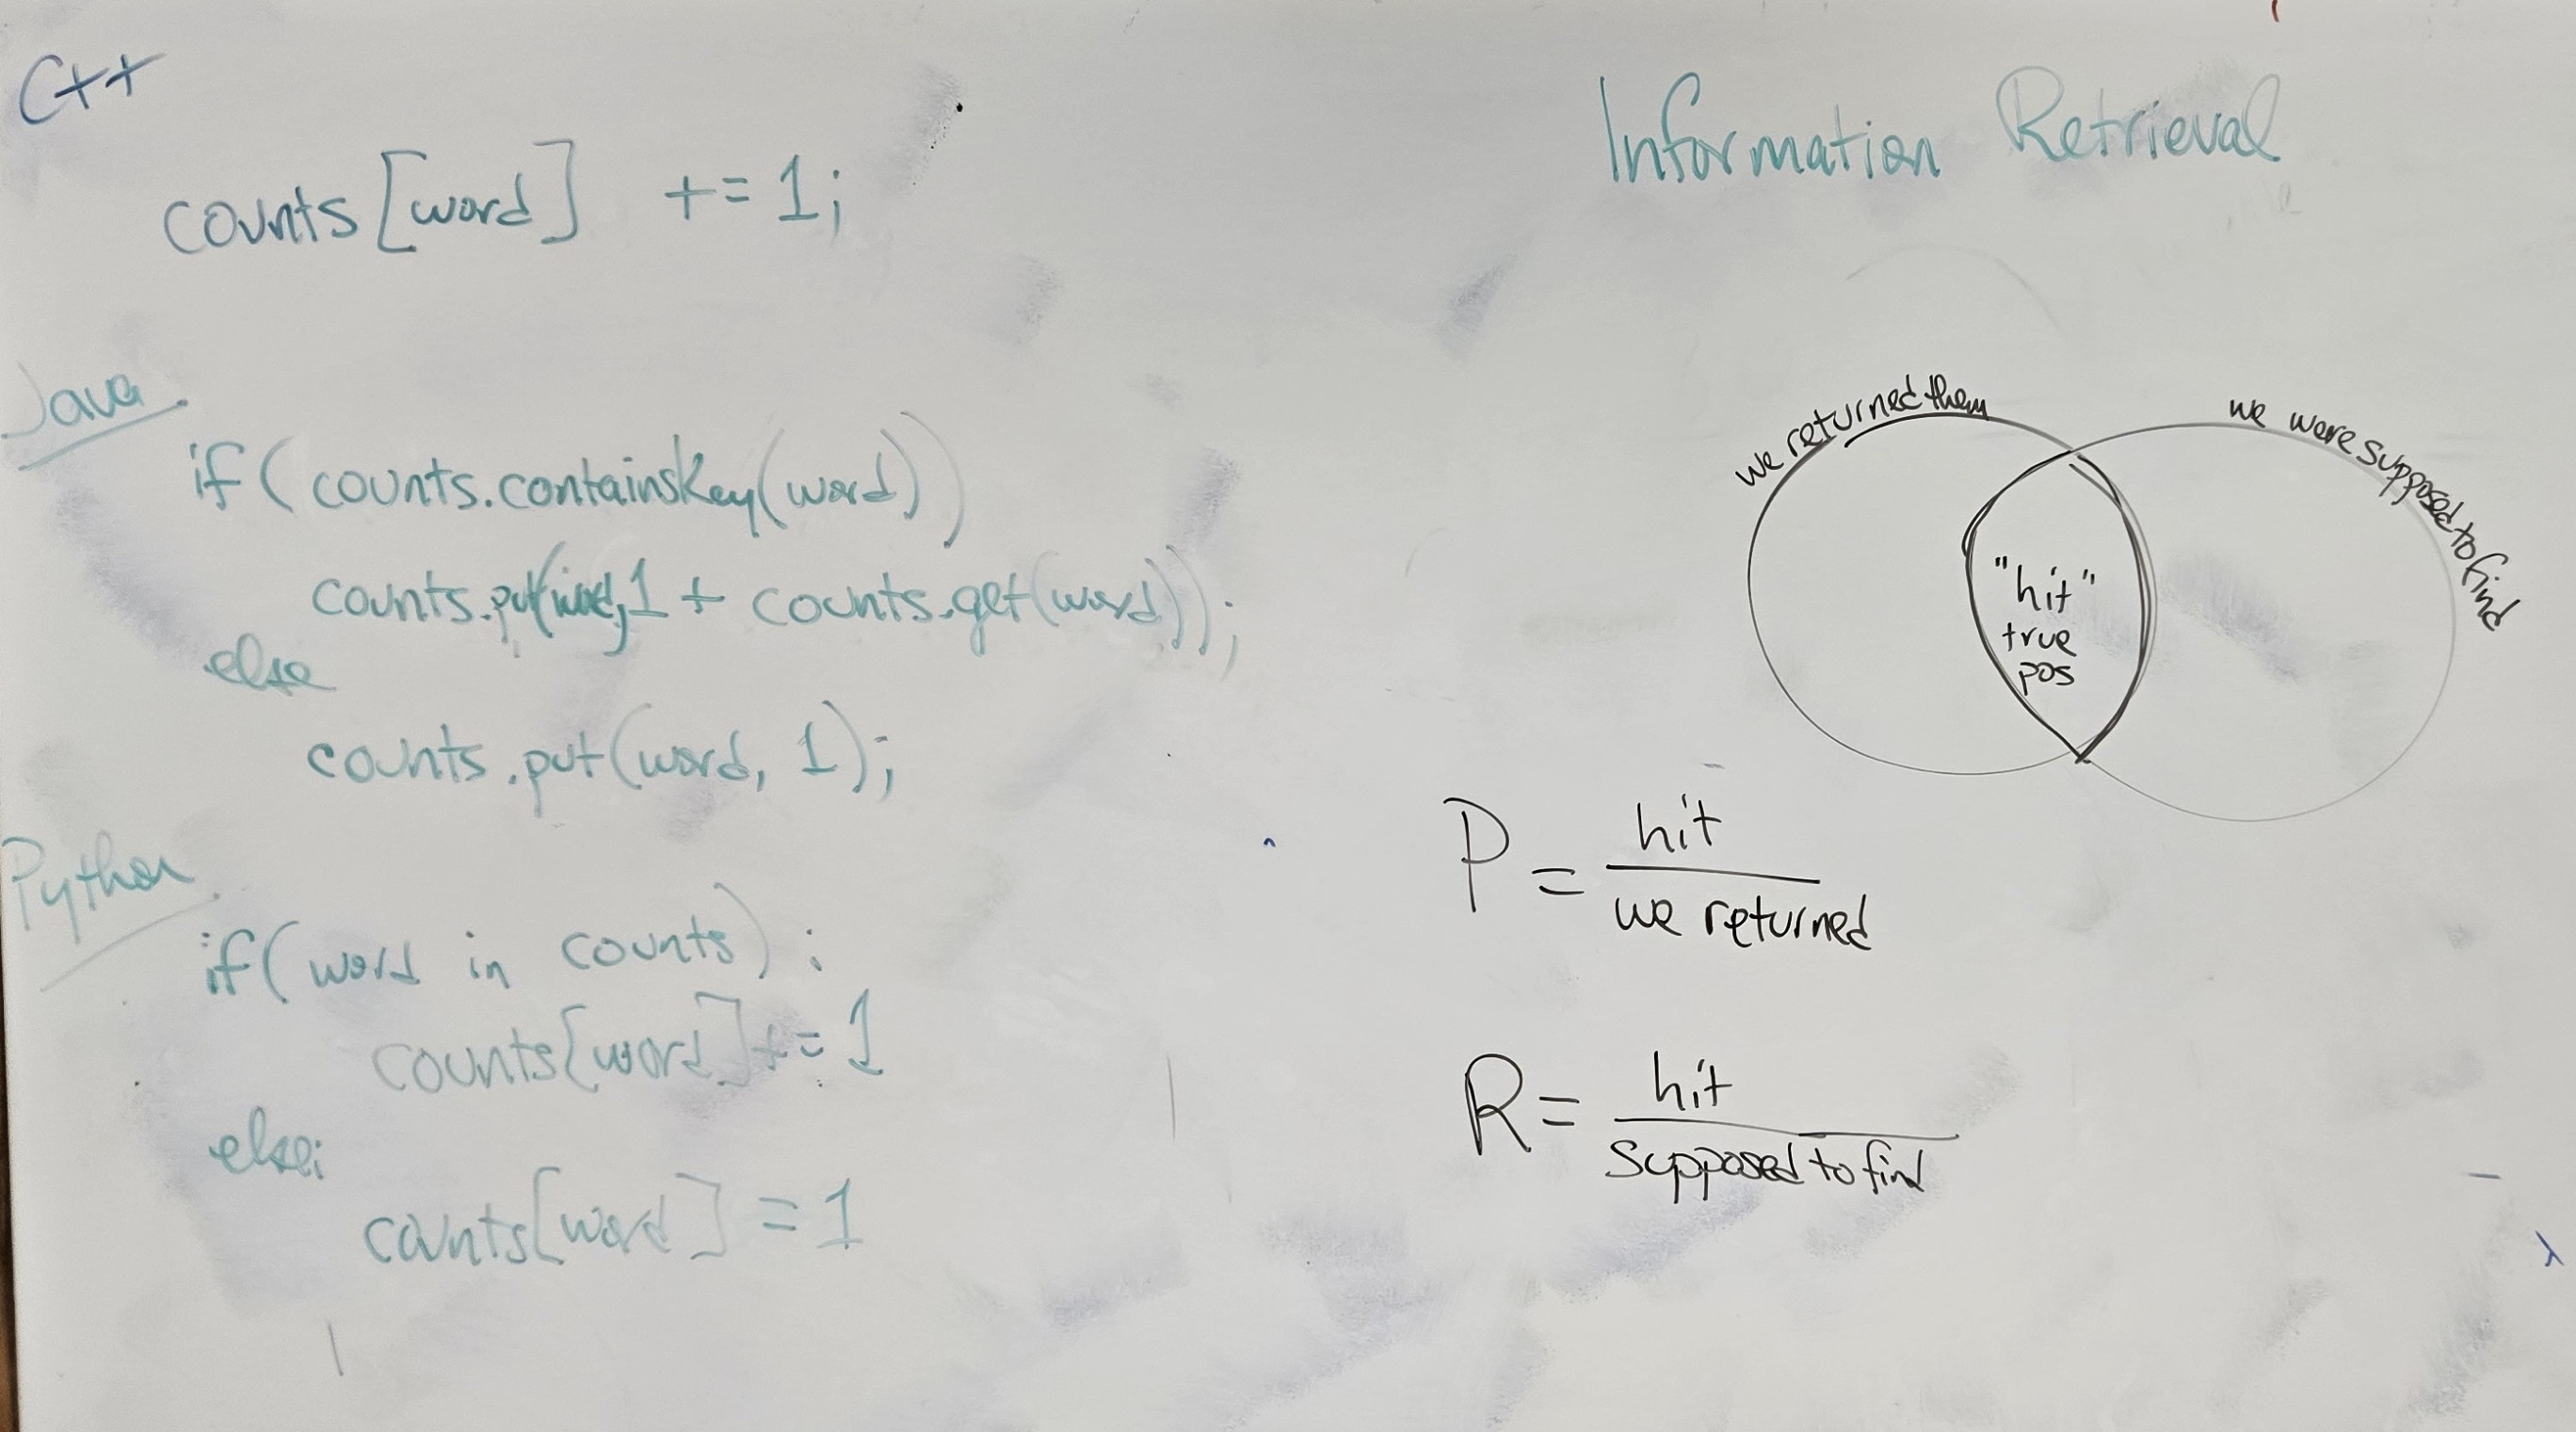 C++
counts[word] += 1;
Java
if (counts.containsKey(word))
counts.put(word,1 + counts.get(word));
else
counts.put(word, 1);
Python
if(word in counts):
counts[word] += 1
else:
counts[word] = 1
Information Retrieval
we returned them
we were supposed to find
"hit"
true
pos
P = hit
we returned
R = hit
supposed to find
λ